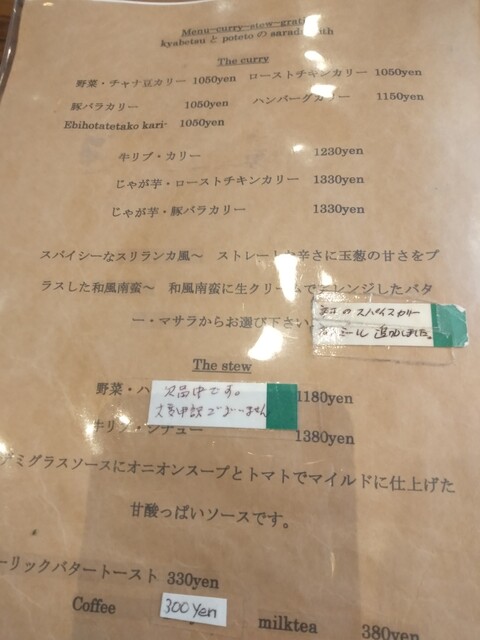 Menu-curry-stew-grati
kyabetsu と poteto の sarad
The curry
野菜・チャナ豆カリー 1050yen ローストチキンカリー 1050yen
豚バラカリー 1050yen ハンバーグカリー 1150yen
Ebihotatetako kari- 1050yen
牛リブ・カリー 1230yen
じゃが芋・ローストチキンカリー 1330yen
じゃが芋・豚バラカリー 1330yen
スパイシーなスリランカ風〜 ストレートな辛さに玉葱の甘さをプ
ラスした和風南蛮〜 和風南蛮に生クリームでアレンジしたバタ
ー・マサラからお選び下さい
のスパイスカリー
追加しました。
The stew
野菜・ハ 1180yen
欠品中です。
大変申訳ございません
牛リブ・シチュー 1380yen
デミグラスソースにオニオンスープとトマトでマイルドに仕上げた
甘酸っぱいソースです。
ーリックバタートースト 330yen
Coffee 300yen milktea 380yen